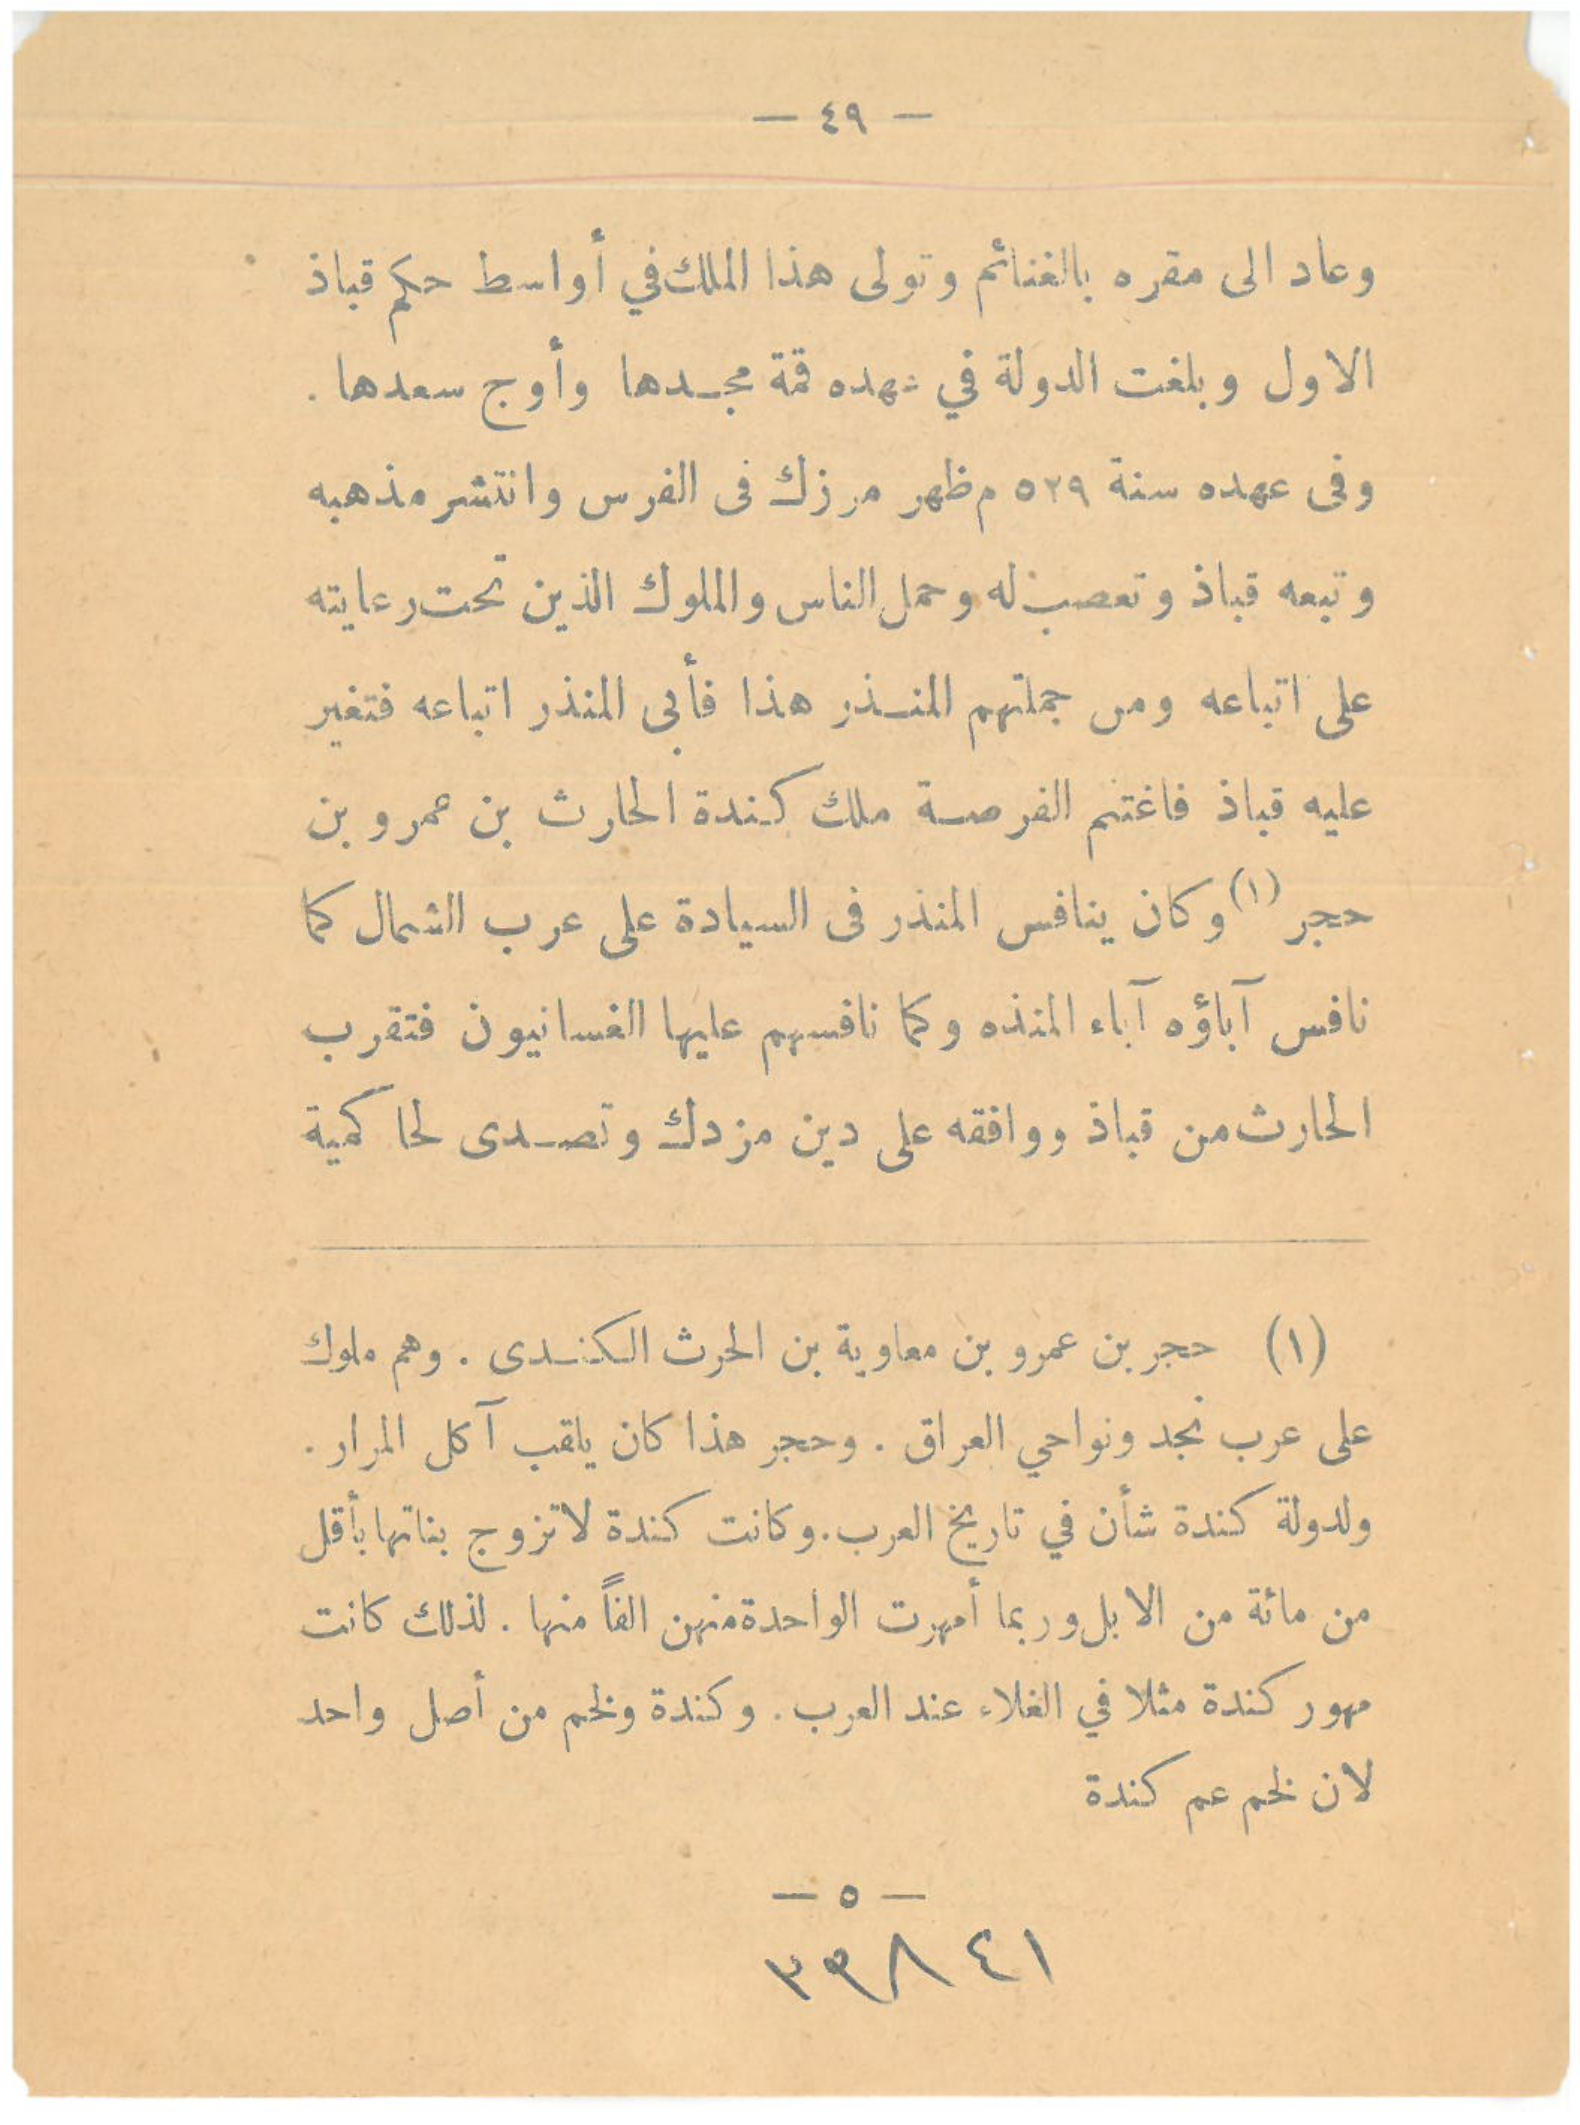 — ٤٩ —
وعاد الى مقره بالغنائم وتولى هذا الملك في أواسط حكم قباذ
الاول وبلغت الدولة في عهده قمة مجدها وأوج سعدها .
وفى عهده سنة ٥٢٩ م ظهر مرزك فى الفرس وانتشر مذهبه
وتبعه قباذ وتعصب له وحمل الناس والملوك الذين تحت رعايته
على اتباعه ومن جملتهم المنذر هذا فأبى المنذر اتباعه فتغير
عليه قباذ فاغتنم الفرصة ملك كندة الحارث بن عمرو بن
حجر (١) وكان ينافس المنذر فى السيادة على عرب الشمال كما
نافس آباؤه آباء المنذه وكما نافسهم عليها الغسانيون فتقرب
الحارث من قباذ ووافقه على دين مزدك وتصدى لحا كمية
(١) حجر بن عمرو بن معاوية بن الحرث الكندى . وهم ملوك
على عرب نجد ونواحي العراق . وحجر هذا كان يلقب آكل المرار .
ولدولة كندة شأن في تاريخ العرب . وكانت كندة لا تزوج بناتها بأقل
من مائة من الابل وربما أمهرت الواحدة منهن الفاً منها . لذلك كانت
مهور كندة مثلا في الغلاء عند العرب . وكندة ولخم من أصل واحد
لان لخم عم كندة
— ٥ —
٣٩٨٤١